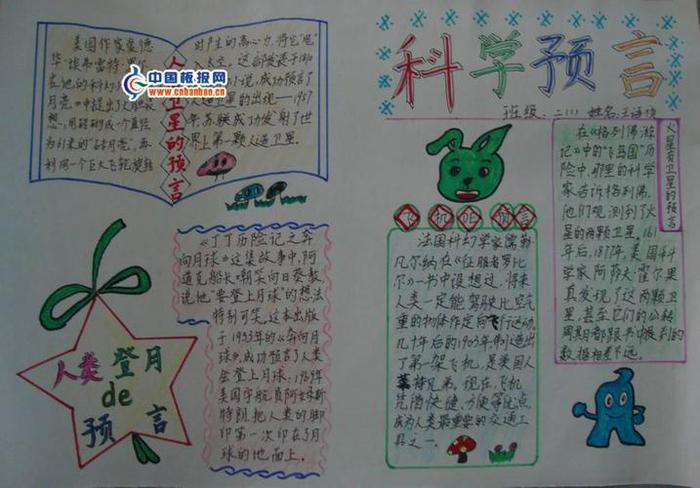 科学预言
班级:二(1) 姓名:王
人造卫星的预言
美国作家爱德
华·埃弗雷特
在他的科幻
月亮》中提出了大胆设
想,用砖砌成一个直径
时产生的离心力,将它"甩
入太空。这部
小说,成功预言了
人造卫星的出现——1957
年苏联成功发射了世
界上第一颗人造卫星。
中国板报网
www.cnbanbao.cn
人类登月
de
预言
《丁丁历险记之奔
向月球》这集故事中,阿
道克船长嘲笑向日葵教
说他"要登上月球"的想法
特别可笑。这本出版
于1953年的《奔向月
球》,成功预言了人类
会登上月球:1969年
美国宇航员阿姆斯
特朗,把人类的脚
印第一次印在了月
球的地面上。
飞机的预言
法国科幻学家儒勒
凡尔纳在《征服者罗比
尔》一书中设想过,将来
人类一定能驾驶比空气
重的物体作定向飞行运动。
几十年后的1903年,制造出
了第一架飞机,是美国人
莱特兄弟。现在,飞机
凭借快捷、方便等优点,
成为人类最重要的交通工
具之一。
火星有卫星的预言
在《格列佛游
记》中的"飞岛国"历
险中,那里的科学
家告诉格列佛,
他们观测到了火
星的两颗卫星。161
年后,1877年,美国科
学家阿萨夫·霍尔果
真发现了这两颗卫
星,甚至它们的公转
周期都跟书中披判的
数据相差不远。